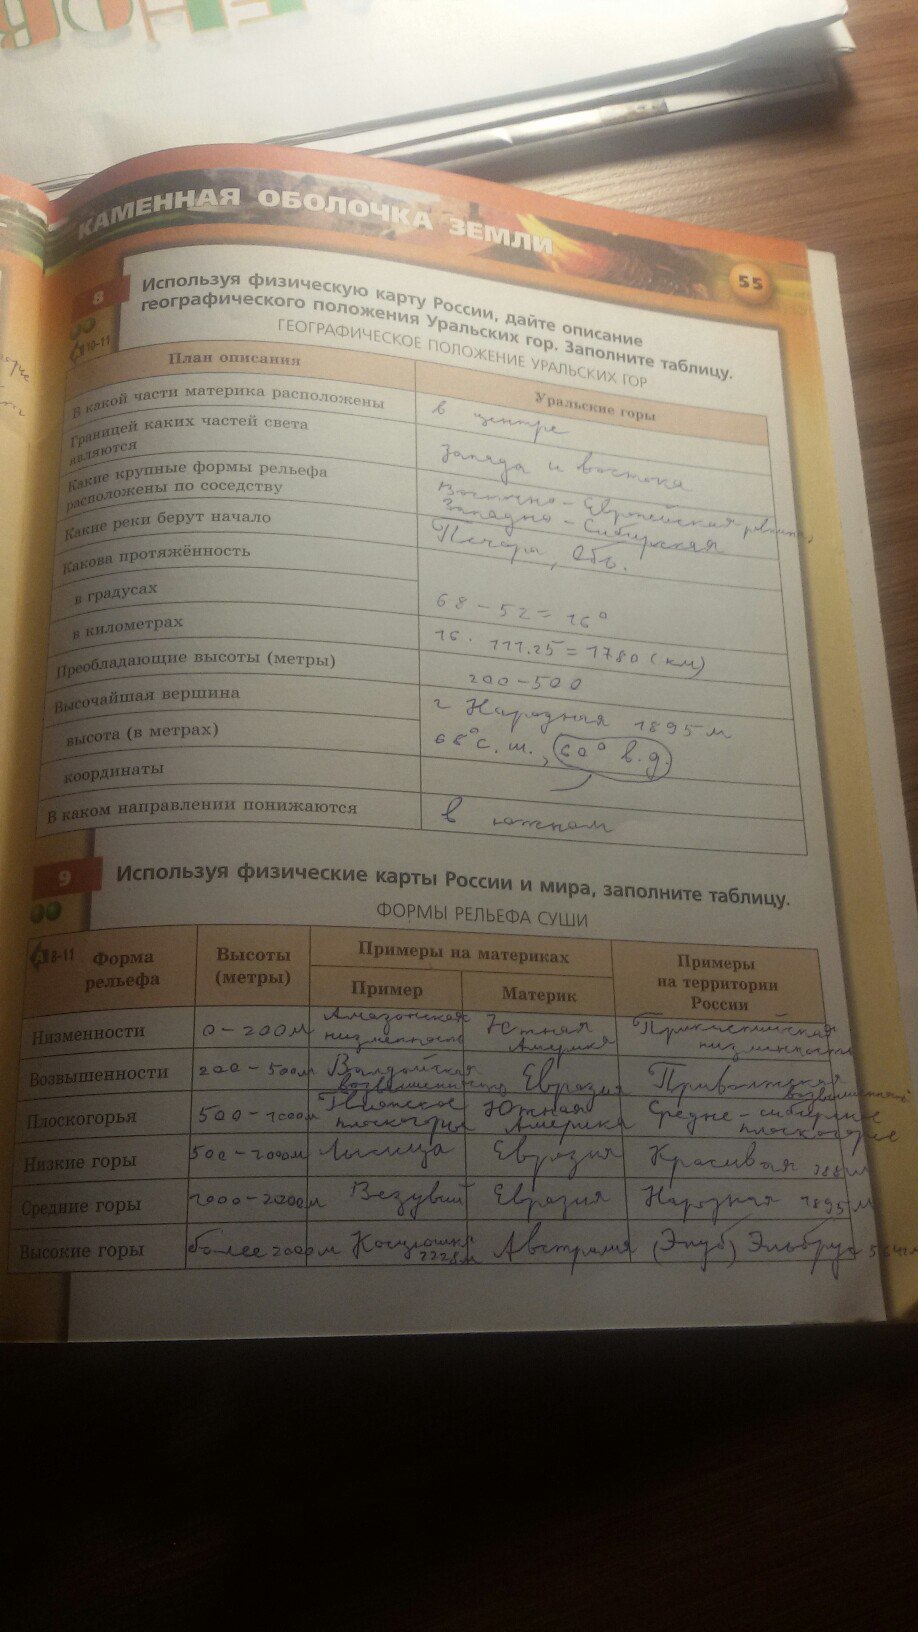 КАМЕННАЯ ОБОЛОЧКА ЗЕМЛИ
55
8
Используя физическую карту России, дайте описание
географического положения Уральских гор. Заполните таблицу.
10-11
ГЕОГРАФИЧЕСКОЕ ПОЛОЖЕНИЕ УРАЛЬСКИХ ГОР
План описания
Уральские горы
В какой части материка расположены
в центре
Границей каких частей света
являются
Запада и востока
Какие крупные формы рельефа
расположены по соседству
Восточно-Европейская равнина,
Западно-Сибирская
Какие реки берут начало
Печора, Обь.
Какова протяжённость
в градусах
68-52=16°
в километрах
16.111.25=1780(км)
Преобладающие высоты (метры)
200-500
Высочайшая вершина
г Народная 1895м
высота (в метрах)
68°с.ш., 60° в.д.
координаты
В каком направлении понижаются
в южном
9
Используя физические карты России и мира, заполните таблицу.
ФОРМЫ РЕЛЬЕФА СУШИ
8-11
Форма
рельефа
Высоты
(метры)
Примеры на материках
Пример
Материк
Примеры
на территории
России
Низменности
0-200м
Амазонская
низменность
Южная
Америка
Прикаспийская
низменность
Возвышенности
200-500м
Валдайская
возвышенность
Евразия
Приволжская
возвышенность
Плоскогорья
500-1000м
плоскогорья
Южная
Америка
Средне-сибирское
плоскогорье
Низкие горы
500-1000м
Лысица
Евразия
Красивая
Средние горы
1000-2000м
Везувий
Евразия
Народная 1895м
Высокие горы
более 2000м
Косцюшко
2228м
Австралия
Эльбрус 5642м